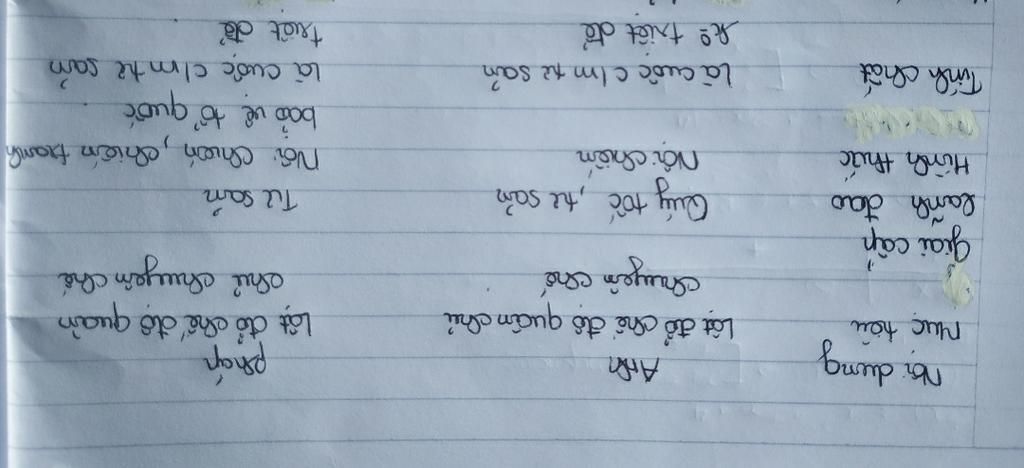 Nội dung Anh Pháp
Mục tiêu Lật đổ chế độ quân chủ Lật đổ chế độ quân
chuyên chế chủ chuyên chế
giai cấp
lãnh đạo Quý tộc, tư sản Tư sản
Hình thức Nội chiến Nội chiến, chiến tranh
bảo vệ tổ quốc
Tính chất Là cuộc c/m tư sản Là cuộc c/m tư sản
ko triệt để triệt để